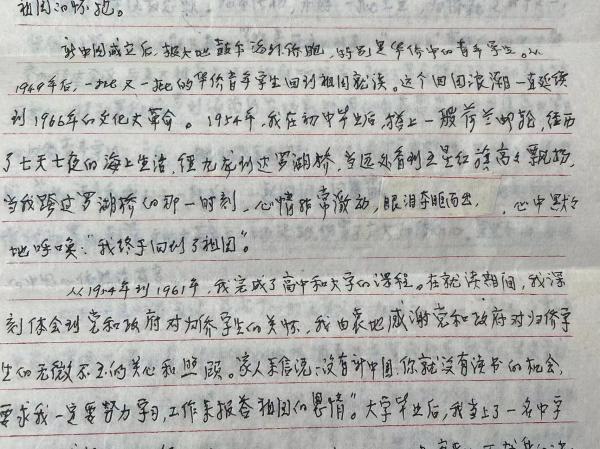 祖国的怀抱。
新中国成立后,极大地鼓舞海外侨胞,特别是华侨中的青年学生。从
1949年后,一批又一批的华侨青年学生回到祖国就读。这个回国浪潮一直延续
到1966年的文化大革命。1954年,我在初中毕业后,搭上一艘荷兰邮轮,经历
了七天七夜的海上生活,经九龙到达罗湖桥,当远处看到五星红旗高高飘扬,
当我跨过罗湖桥的那一时刻,心情非常激动,眼泪夺眶而出,心中默默
地呼唤:“我终于回到了祖国”。
从1954年到1961年,我完成了高中和大学的课程。在就读期间,我深
刻体会到党和政府对归侨学生的关怀,我由衷地感谢党和政府对归侨学
生的无微不至的关心和照顾。家人来信说:没有新中国,你就没有读书的机会,
要求我一定要努力学习,工作来报答祖国的恩情”。大学毕业后,我当上了一名中学